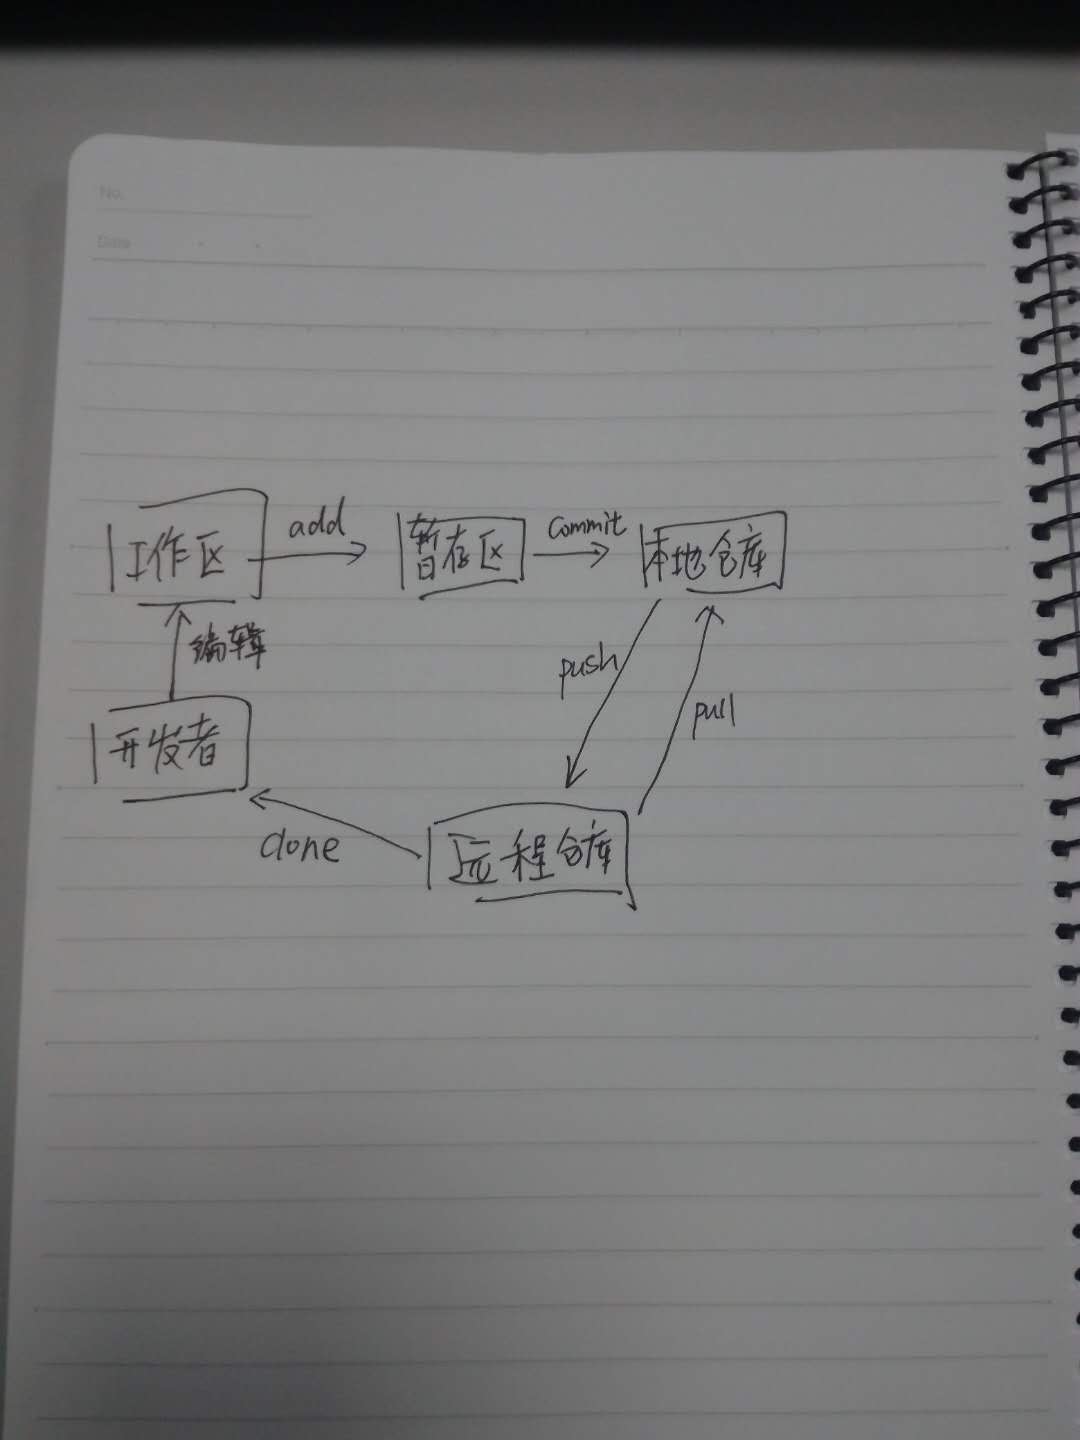 No.
Date
工作区 add 暂存区 commit 本地仓库
编辑
push
pull
开发者
done
远程仓库